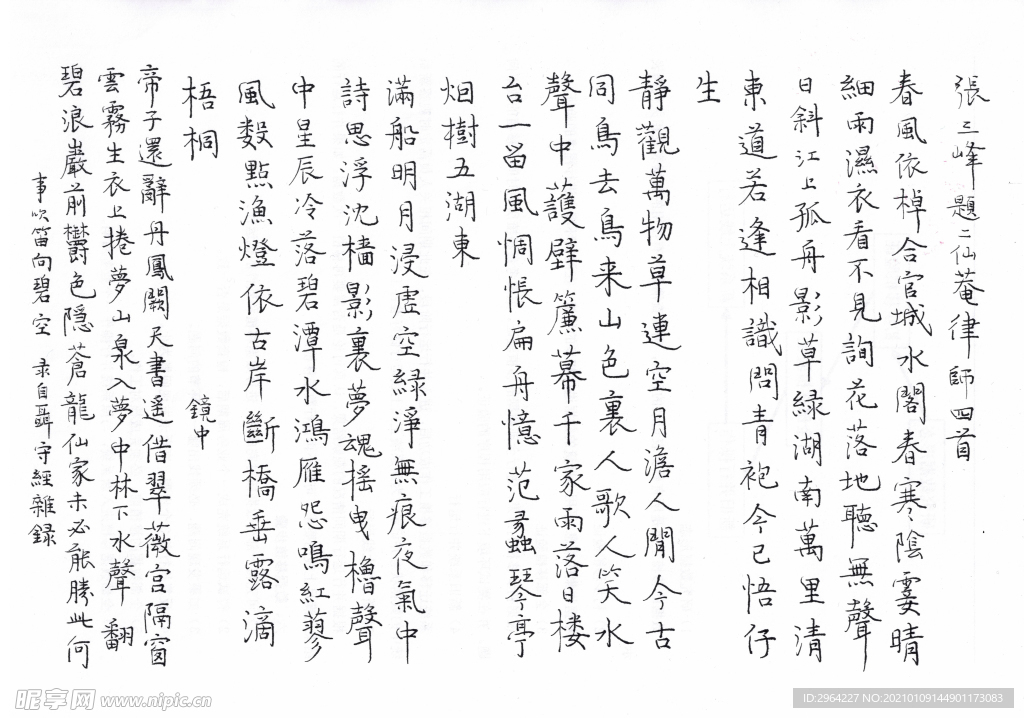 張三峰題二仙菴律師四首
春風依棹合官城水閣春寒陰霎晴
細雨濕衣看不見詢花落地聽無聲
日斜江上孤舟影草綠湖南萬里清
東道若逢相識問青袍今已悟仔
生
靜觀萬物草連空月澹人閒今古
同鳥去鳥来山色裏人歌人笑水
聲中護壁簾幕千家雨落日楼
台一笛風惆悵扁舟憶范蠡琴亭
烟樹五湖東
滿船明月浸虛空綠淨無痕夜氣中
詩思浮沈檣影裏夢魂摇曳櫓聲
中星辰冷落碧潭水鴻雁怨鳴紅蓼
風数點漁燈依古岸斷橋垂露滴
梧桐 鏡中
帝子還辭丹鳳闕天書遥借翠薇宫隔窗
雲霧生衣上捲夢山泉入夢中林下水聲 翻
碧浪巖前欝色隱蒼龍仙家未必能勝此何
事吹笛向碧空 录自聶守經雜録
昵享网 www.nipic.cn
ID:2964227 NO:20210109144901173083